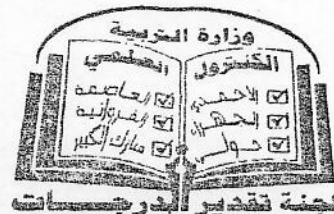 وزارة التربية
الكنترول العلمي
☑ الاحمدي ☑ العاصمة
☑ الجهراء ☑ الفروانية
☑ حولي ☑ مبارك الكبير
لجنة تقدير الدرجات